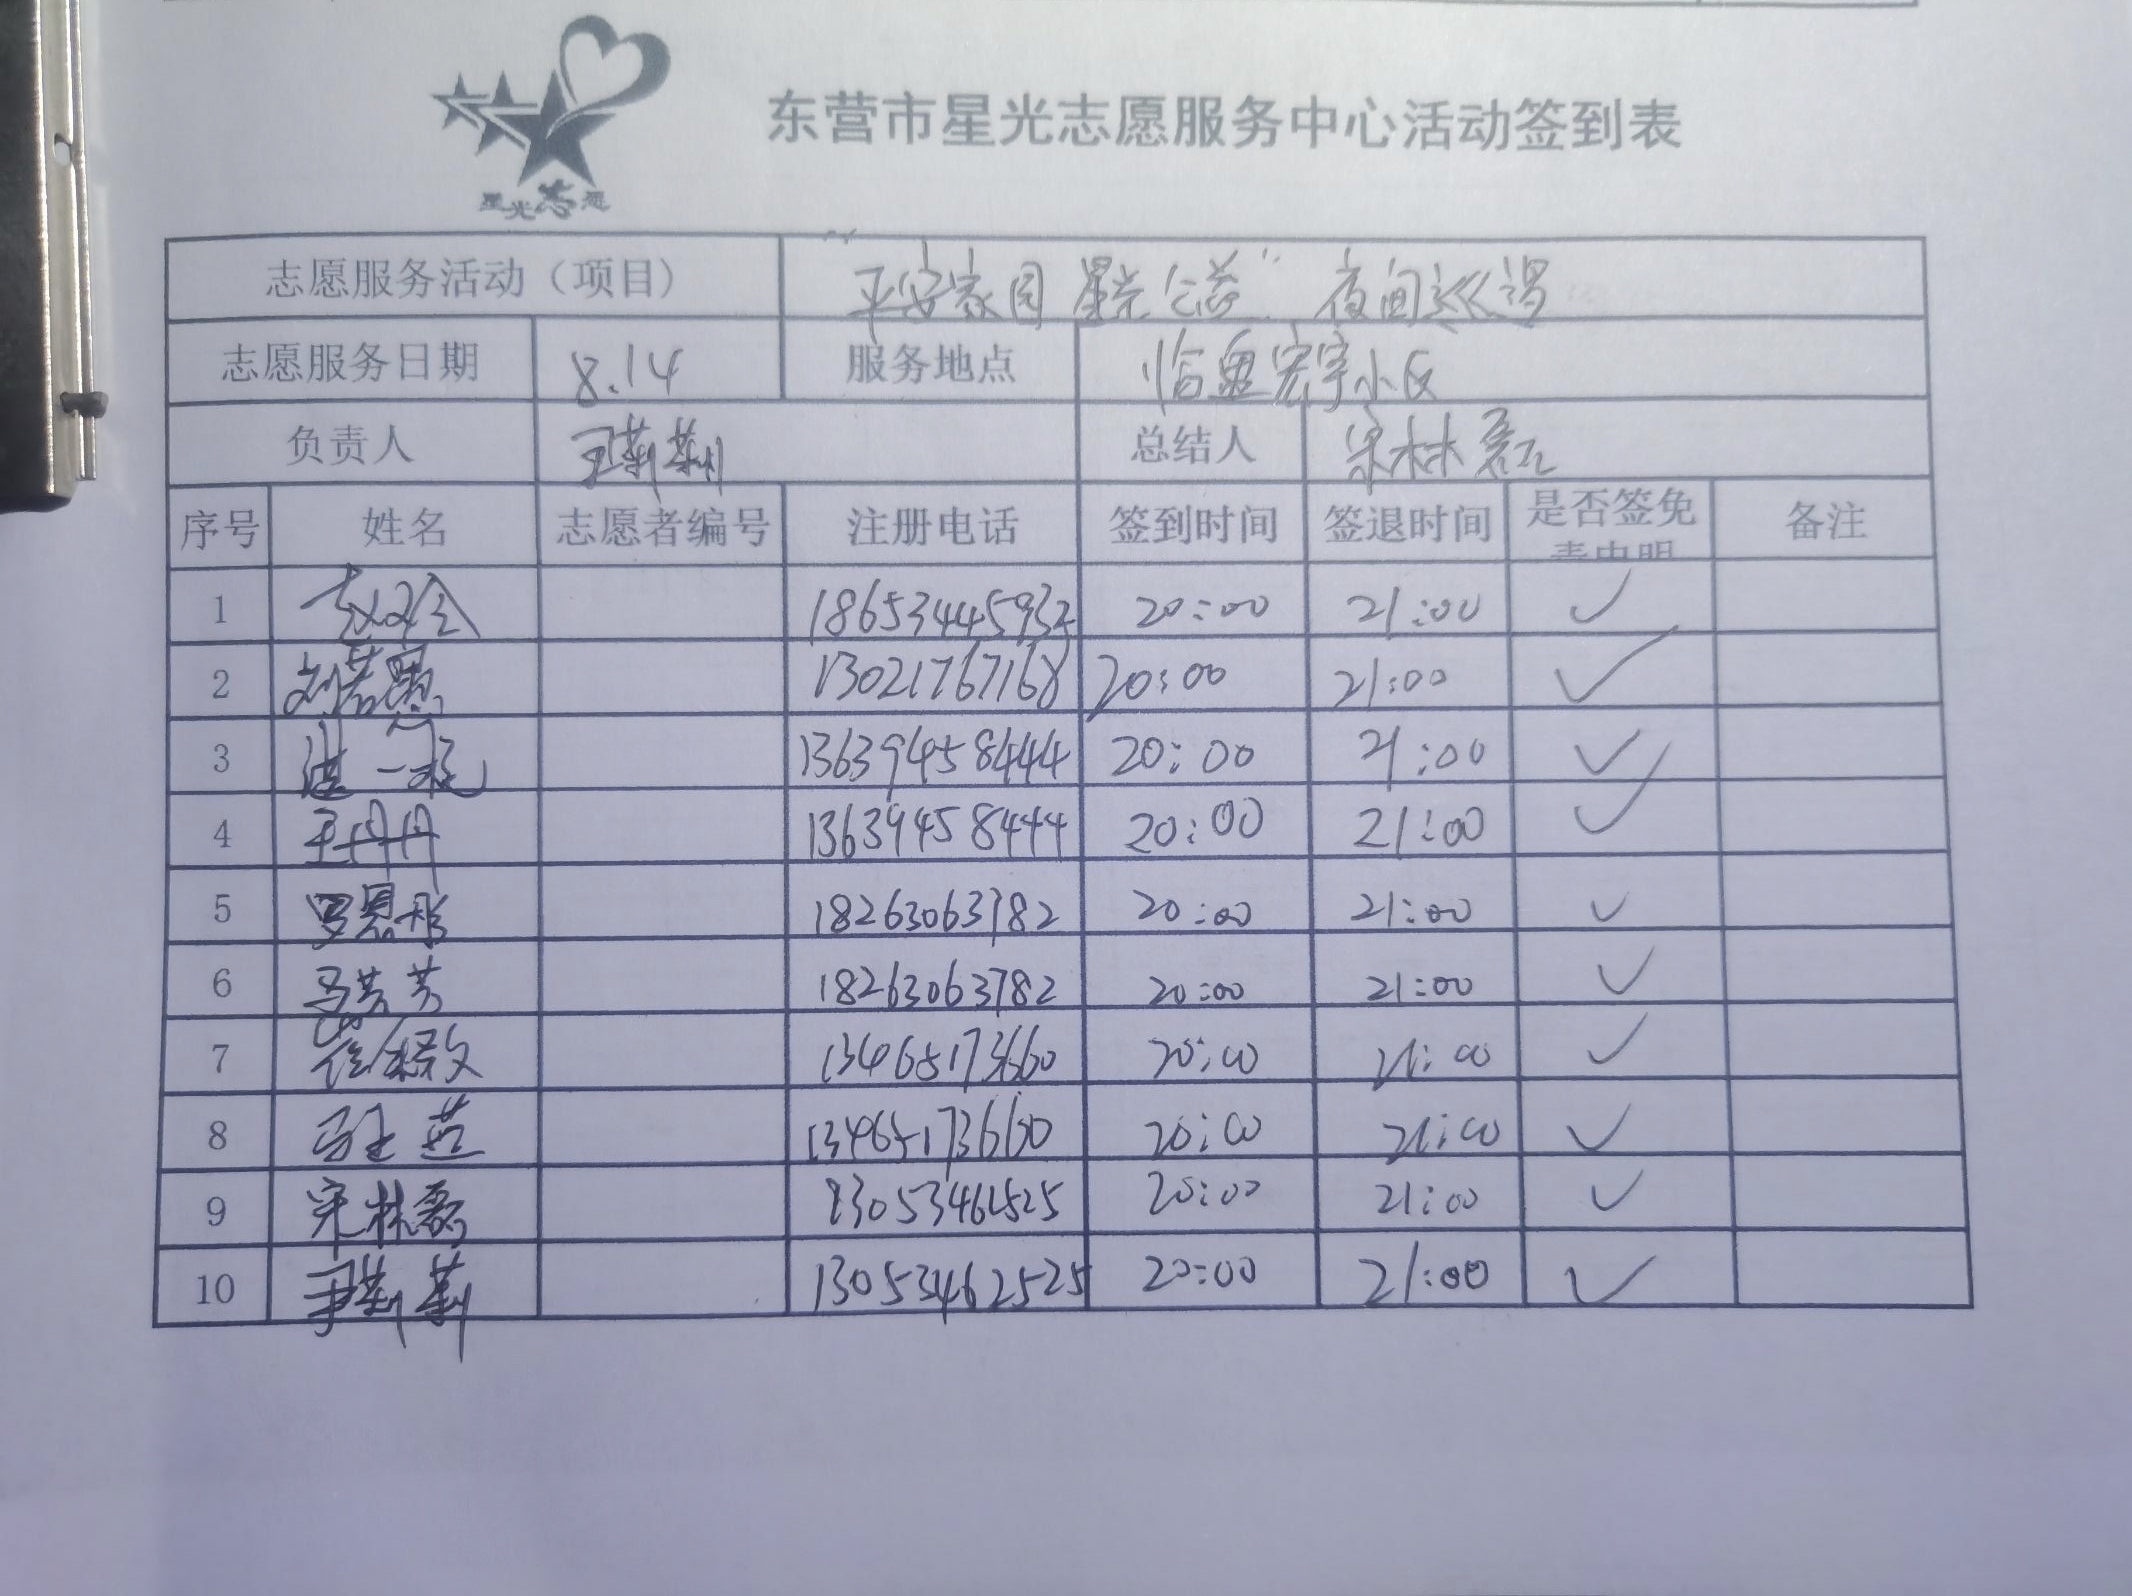 星光志愿
东营市星光志愿服务中心活动签到表
志愿服务活动（项目） "平安家园 星光公益" 夜间巡逻
志愿服务日期 8.14 服务地点 临盘宏宇小区
负责人 王莉莉 总结人 宋林磊
序号 姓名 志愿者编号 注册电话 签到时间 签退时间 是否签免责申明 备注
1 18653445932 20:00 21:00 ✓
2 13021767168 20:00 21:00 ✓
3 13639458444 20:00 21:00 ✓
4 王丹丹 13639458444 20:00 21:00 ✓
5 罗恩彤 18263063782 20:00 21:00 ✓
6 马芳芳 18263063782 20:00 21:00 ✓
7 13465173660 20:00 21:00 ✓
8 13465173660 20:00 21:00 ✓
9 宋林磊 20:00 21:00 ✓
10 13053462525 20:00 21:00 ✓